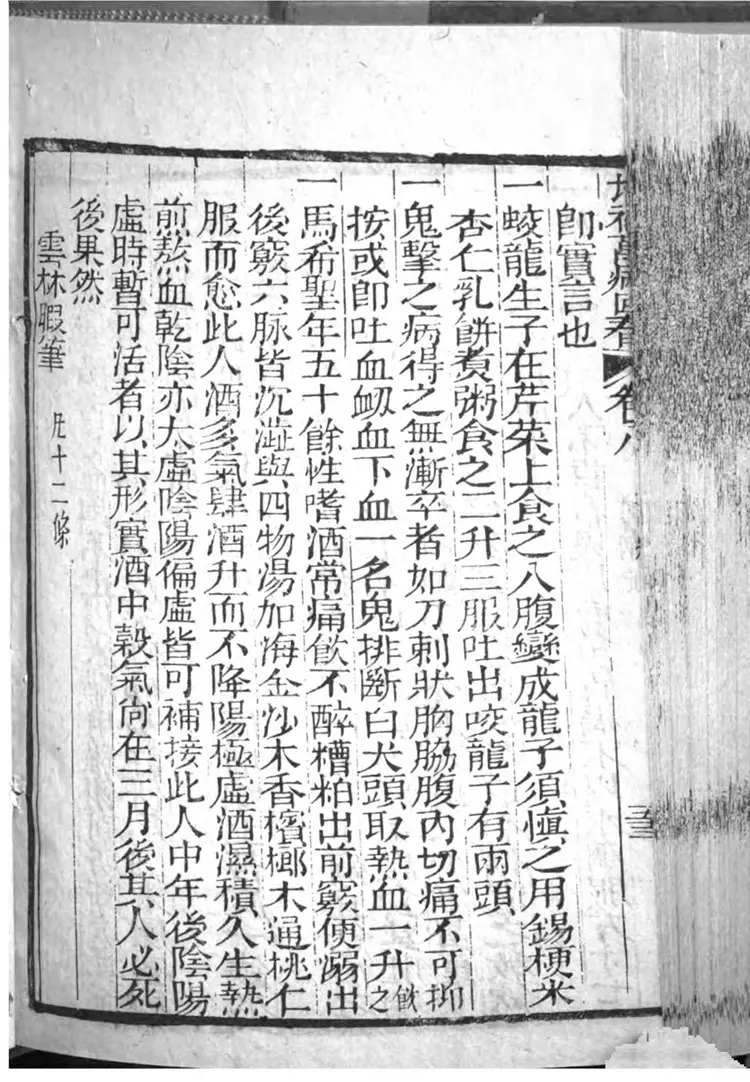 增補萬病回春 卷八
即實言也
一蛟龍生子在芹菜上食之入腹變成龍子須慎之用錫粳米
杏仁乳餅煮粥食之二升三服吐出咬龍子有兩頭
一鬼擊之病得之無漸卒者如刀刺狀胸脇腹內切痛不可抑
按或即吐血衂血下血一名鬼排斷白犬頭取熱血一升飲之
一馬希聖年五十餘性嗜酒常痛飲不醉糟粕出前竅便溺出
後竅六脉皆沉澁與四物湯加海金沙木香檳榔木通桃仁
服而愈此人酒多氣肆酒升而不降陽極虛酒濕積久生熱
煎熬血乾陰亦大虛陰陽偏虛皆可補接此人中年後陰陽
虛時暫可活者以其形實酒中穀氣尙在三月後其人必死
後果然
雲林暇筆 凡十二條